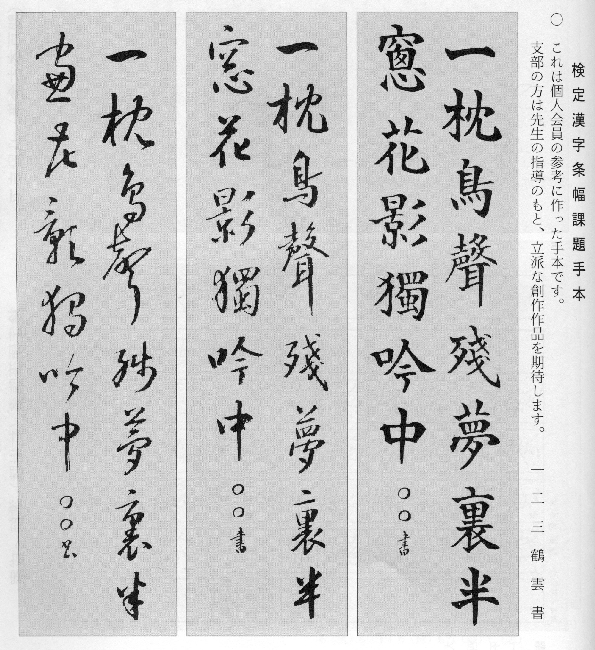 検定漢字条幅課題手本
○ これは個人会員の参考に作った手本です。
支部の方は先生の指導のもと、立派な創作作品を期待します。 一二三鶴雲書
一枕鳥聲残夢裏半
窓花影獨吟中 〇〇書
一枕鳥聲残夢裏半
窓花影獨吟中 〇〇書
一枕鳥聲残夢裏半
窓花影獨吟中 〇〇書